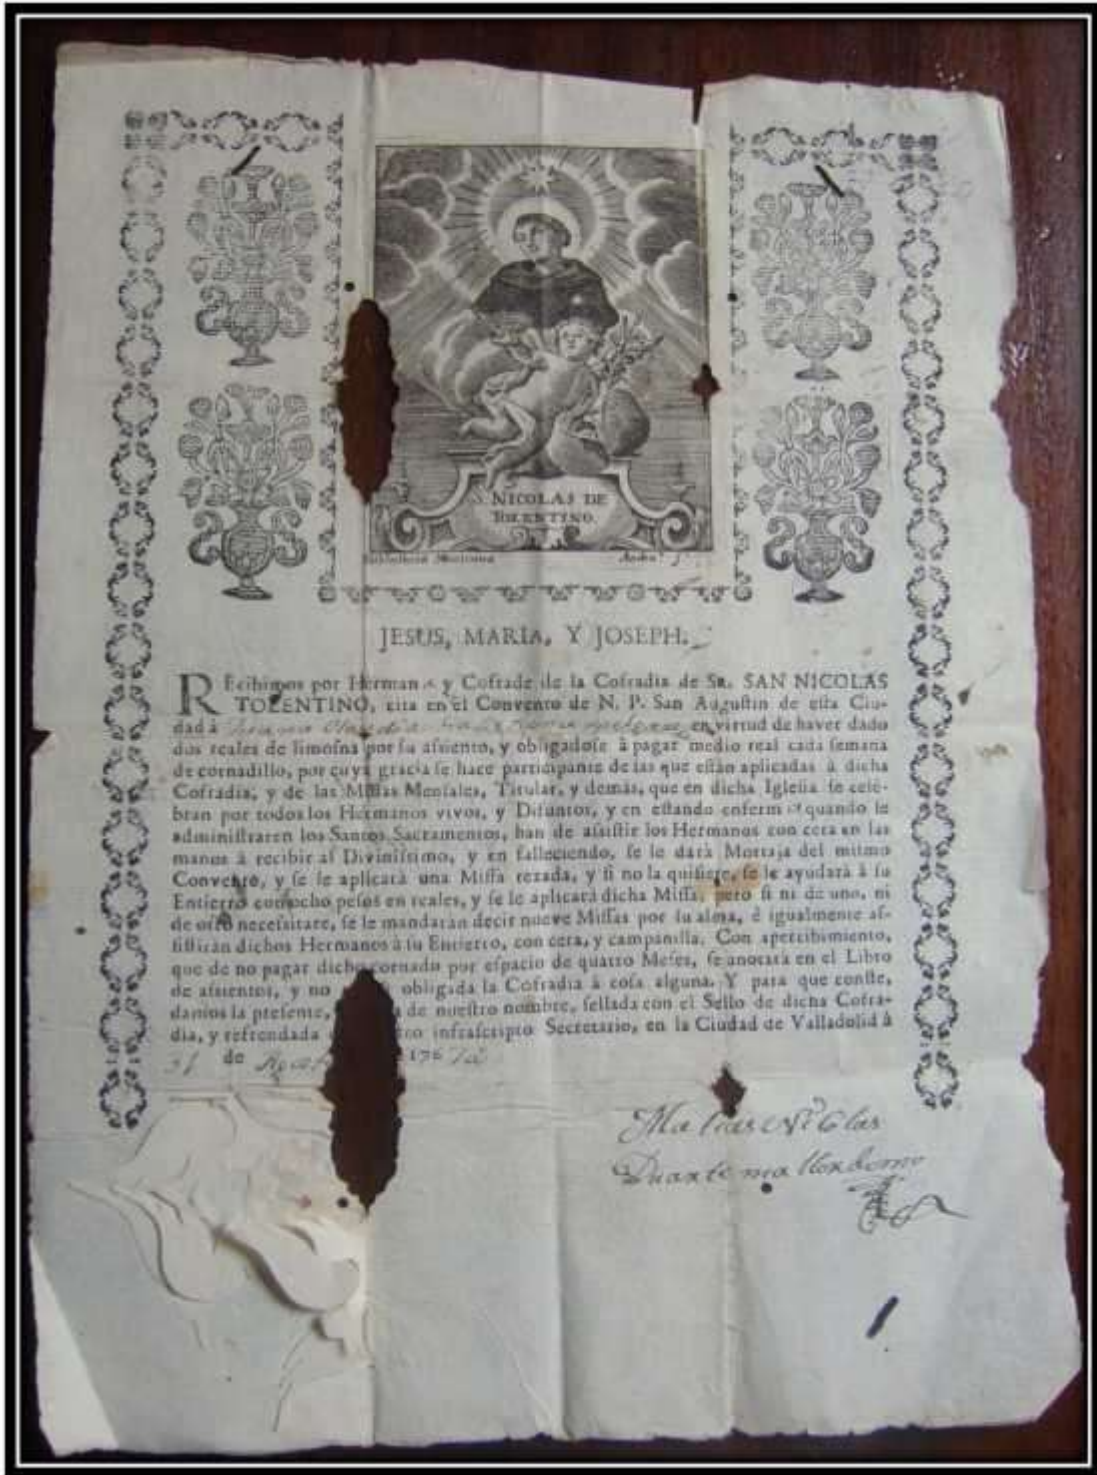 S. NICOLAS DE
TOLENTINO.
JESUS, MARIA, Y JOSEPH.
REcibimos por Herman y Cofrade de la Cofradia de SR. SAN NICOLAS
TOLENTINO, cita en el Convento de N. P. San Augustin de esta Ciu-
dad à en virtud de haver dado
dos reales de limosna por su assiento, y obligadose à pagar medio real cada semana
de cornadillo, por cuya gracia se hace participante de las que están aplicadas à dicha
Cofradia, y de las Missas Mensales, Titular, y demás, que en dicha Iglesia se cele-
bran por todos los Hermanos vivos, y Difuntos, y en estando enferm quando le
administraren los Santos Sacramentos, han de assistir los Hermanos con cera en las
manos à recibir al Divinissimo, y en falleciendo, se le darà Mortaja del mismo
Convento, y se le aplicarà una Missa rezada, y si no la quisiere, se le ayudarà à su
Entierro con ocho pesos en reales, y se le aplicarà dicha Missa, pero si ni de uno, ni
de otro necessitare, se le mandaràn decir nueve Missas por su alma, è igualmente as-
sistiràn dichos Hermanos à su Entierro, con cera, y campanilla. Con apercibimiento,
que de no pagar dicho cornado por espacio de quatro Meses, se anotarà en el Libro
de assientos, y no obligada la Cofradia à cosa alguna. Y para que conste,
damos la presente, de nuestro nombre, sellada con el Sello de dicha Cofra-
dia, y refrendada infrascripto Secretario, en la Ciudad de Valladolid à
31 de 176
Matias Nicolas
Duarte